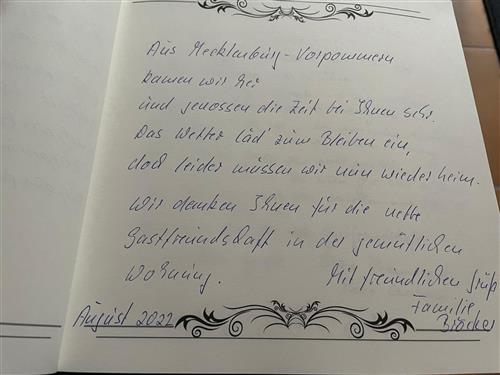 Aus Mecklenburg-Vorpommern
kamen wir her
und genossen die Zeit bei Ihnen sehr.
Das Wetter läd' zum Bleiben ein,
doch leider müssen wir nun wieder heim.
Wir danken Ihnen für die nette
Gastfreundschaft in der gemütlichen
Wohnung.
Mit freundlichen Grüß
Familie
August 2022